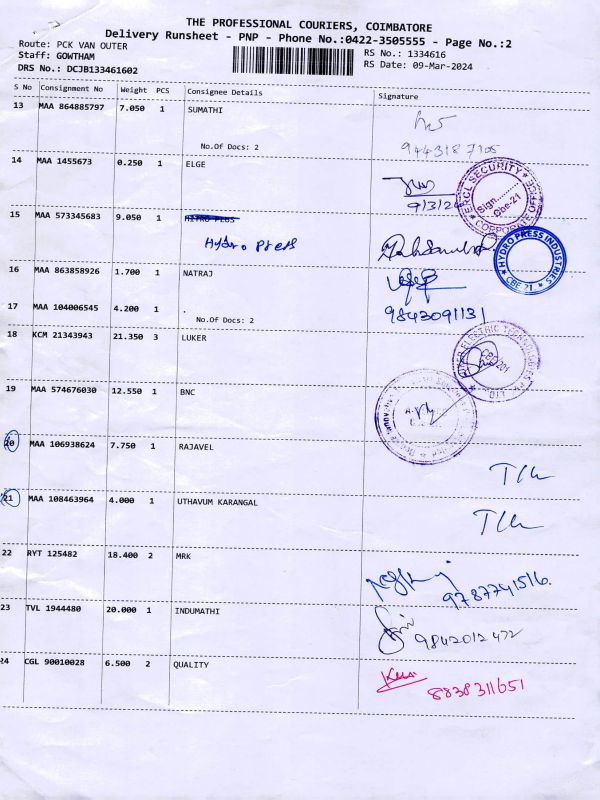 THE PROFESSIONAL COURIERS, COIMBATORE
Delivery Runsheet - PNP - Phone No.:0422-3505555 - Page No.:2
Route: PCK VAN OUTER
Staff: GOWTHAM
DRS No.: DCJB133461602
RS No.: 1334616
RS Date: 09-Mar-2024
S No Consignment No Weight PCS Consignee Details Signature
13 MAA 864885797 7.050 1 SUMATHI
No.Of Docs: 2
14 MAA 1455673 0.250 1 ELGE
9/3/24
SECURITY
Sign
Cbe-21
CORPORATE
15 MAA 573345683 9.050 1
Hydro Press
HYDRO PRESS INDUSTRIES
CBE 21.
16 MAA 863858926 1.700 1 NATRAJ
17 MAA 104006545 4.200 1 .
No.Of Docs: 2
9843091131
18 KCM 21343943 21.350 3 LUKER
LUKER ELECTRIC TECHNOLOGIES
LTD
19 MAA 574676030 12.550 1 BNC
20 MAA 106938624 7.750 1 RAJAVEL
21 MAA 108463964 4.000 1 UTHAVUM KARANGAL
22 RYT 125482 18.400 2 MRK
9787741516.
23 TVL 1944480 20.000 1 INDUMATHI
9842012472
24 CGL 90010028 6.500 2 QUALITY
8838311651